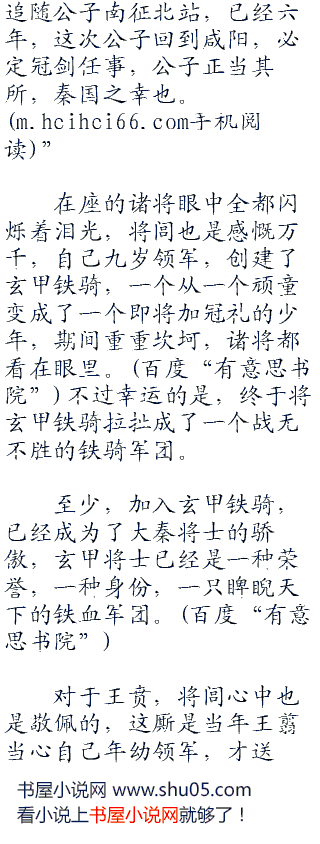 追随公子南征北站，已经六
年，这次公子回到咸阳，必
定冠剑任事，公子正当其
所，秦国之幸也。
(m.hcihci66.com手机阅
读)”
在座的诸将眼中全都闪
烁着泪光，将闾也是感慨万
千，自己九岁领军，创建了
玄甲铁骑，一个从一个顽童
变成了一个即将加冠礼的少
年，期间重重坎坷，诸将都
看在眼里。(百度“有意思书
院”)不过幸运的是，终于将
玄甲铁骑拉扯成了一个战无
不胜的铁骑军团。
至少，加入玄甲铁骑，
已经成为了大秦将士的骄
傲，玄甲将士已经是一种荣
誉，一种身份，一只睥睨天
下的铁血军团。(百度“有意
思书院”)
对于王贲，将闾心中也
是敬佩的，这厮是当年王翦
当心自己年幼领军，才送
书屋小说网 www.shu05.com
看小说上书屋小说网就够了！